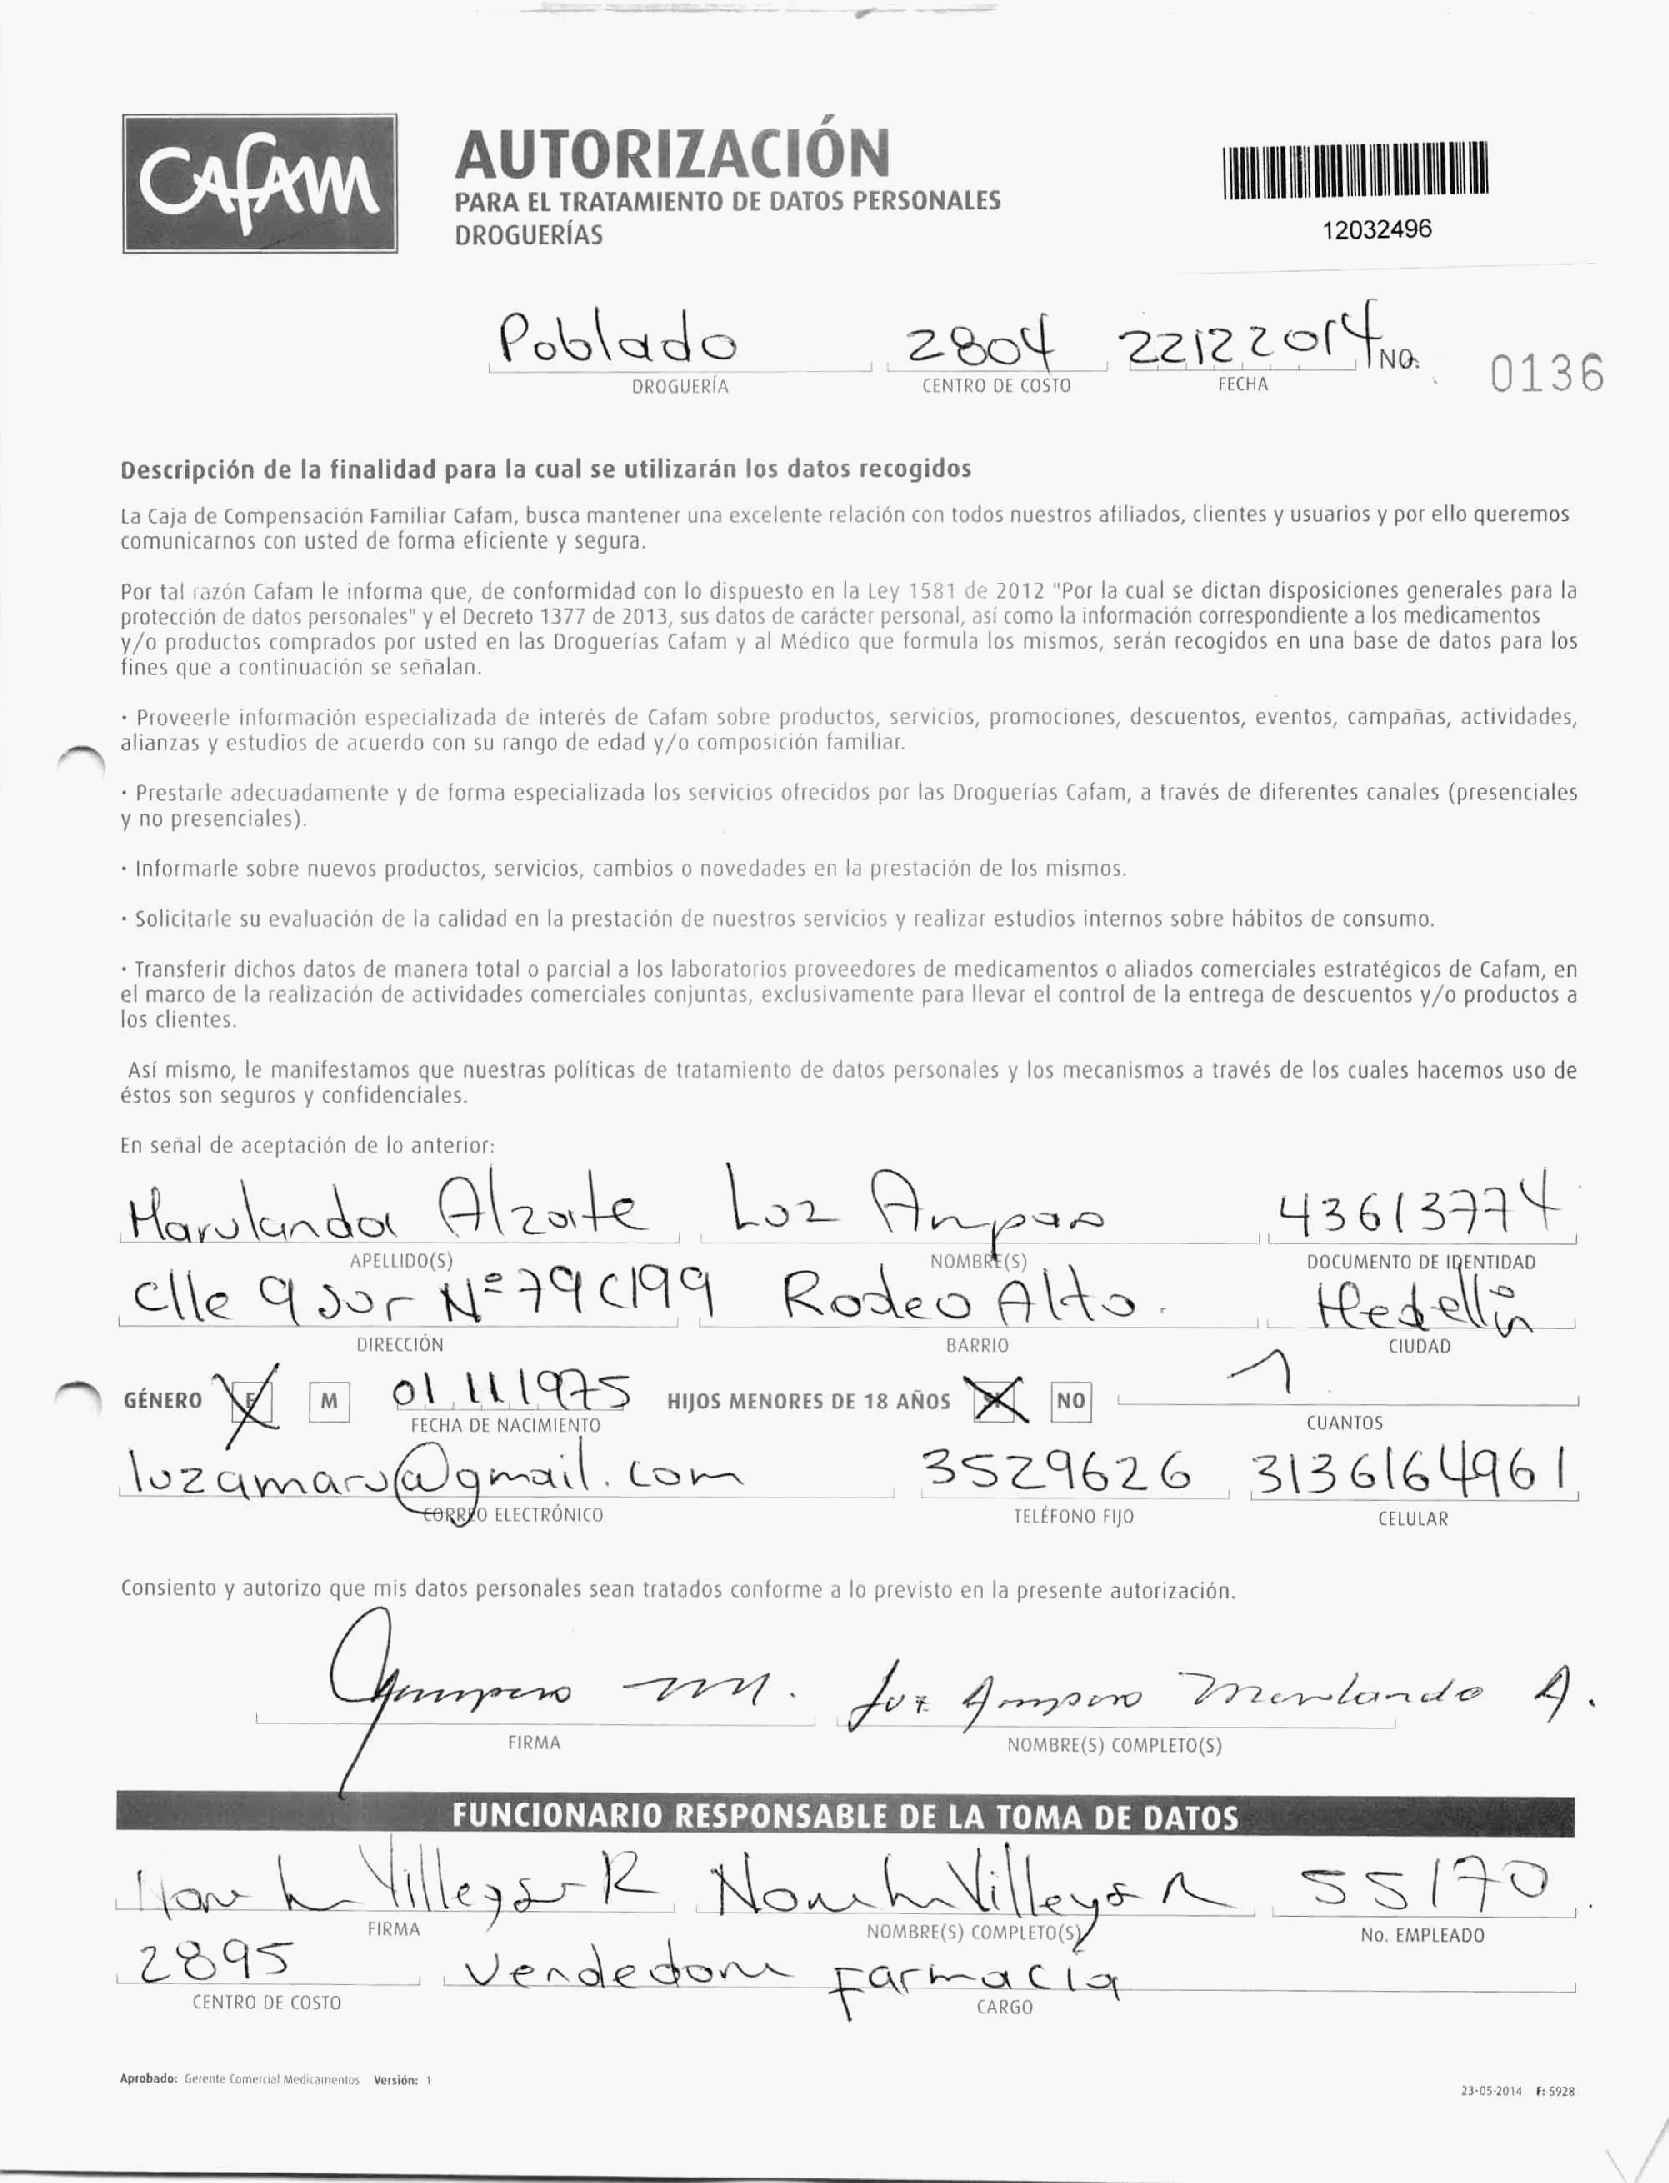 CAFAM
AUTORIZACIÓN
PARA EL TRATAMIENTO DE DATOS PERSONALES
DROGUERÍAS
12032496
Poblado 2804 22122014 NO. 0136
DROGUERÍA CENTRO DE COSTO FECHA
Descripción de la finalidad para la cual se utilizarán los datos recogidos
La Caja de Compensación Familiar Cafam, busca mantener una excelente relación con todos nuestros afiliados, clientes y usuarios y por ello queremos
comunicarnos con usted de forma eficiente y segura.
Por tal razón Cafam le informa que, de conformidad con lo dispuesto en la Ley 1581 de 2012 "Por la cual se dictan disposiciones generales para la
protección de datos personales" y el Decreto 1377 de 2013, sus datos de carácter personal, así como la información correspondiente a los medicamentos
y/o productos comprados por usted en las Droguerías Cafam y al Médico que formula los mismos, serán recogidos en una base de datos para los
fines que a continuación se señalan.
· Proveerle información especializada de interés de Cafam sobre productos, servicios, promociones, descuentos, eventos, campañas, actividades,
alianzas y estudios de acuerdo con su rango de edad y/o composición familiar.
· Prestarle adecuadamente y de forma especializada los servicios ofrecidos por las Droguerías Cafam, a través de diferentes canales (presenciales
y no presenciales).
· Informarle sobre nuevos productos, servicios, cambios o novedades en la prestación de los mismos.
· Solicitarle su evaluación de la calidad en la prestación de nuestros servicios y realizar estudios internos sobre hábitos de consumo.
· Transferir dichos datos de manera total o parcial a los laboratorios proveedores de medicamentos o aliados comerciales estratégicos de Cafam, en
el marco de la realización de actividades comerciales conjuntas, exclusivamente para llevar el control de la entrega de descuentos y/o productos a
los clientes.
Así mismo, le manifestamos que nuestras políticas de tratamiento de datos personales y los mecanismos a través de los cuales hacemos uso de
éstos son seguros y confidenciales.
En señal de aceptación de lo anterior:
Marulanda Alzate Luz Amparo 43613774
APELLIDO(S) NOMBRE(S) DOCUMENTO DE IDENTIDAD
Clle 9 sur Nº 79 C 199 Rodeo Alto. Medellin
DIRECCIÓN BARRIO CIUDAD
GÉNERO F M 01 11 1975 HIJOS MENORES DE 18 AÑOS NO 1
FECHA DE NACIMIENTO CUANTOS
luzamaru@gmail.com 3529626 3136164961
CORREO ELECTRÓNICO TELÉFONO FIJO CELULAR
Consiento y autorizo que mis datos personales sean tratados conforme a lo previsto en la presente autorización.
Amparo Luz Amparo Marulanda A.
FIRMA NOMBRE(S) COMPLETO(S)
FUNCIONARIO RESPONSABLE DE LA TOMA DE DATOS
Villegas R Villegas R 55170
FIRMA NOMBRE(S) COMPLETO(S) No. EMPLEADO
2895 Vendedora farmacia
CENTRO DE COSTO CARGO
Aprobado: Gerente Comercial Medicamentos Versión: 1
23-05-2014 F: 5928